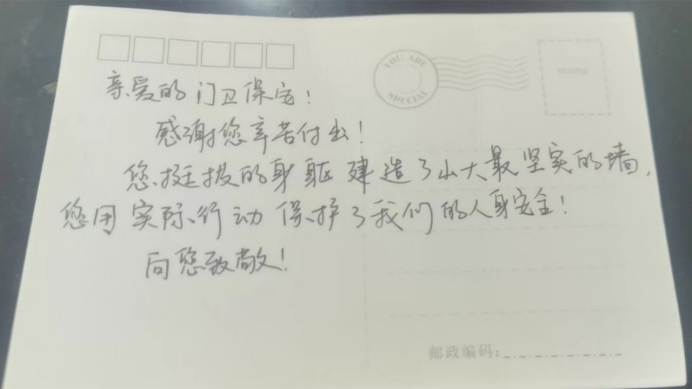 YOU ARE
SPECIAL
亲爱的门卫保安！
感谢您辛苦付出！
您挺拔的身躯建造了山大最坚实的墙，
您用实际行动保护了我们的人身安全！
向您致敬！
邮政编码：